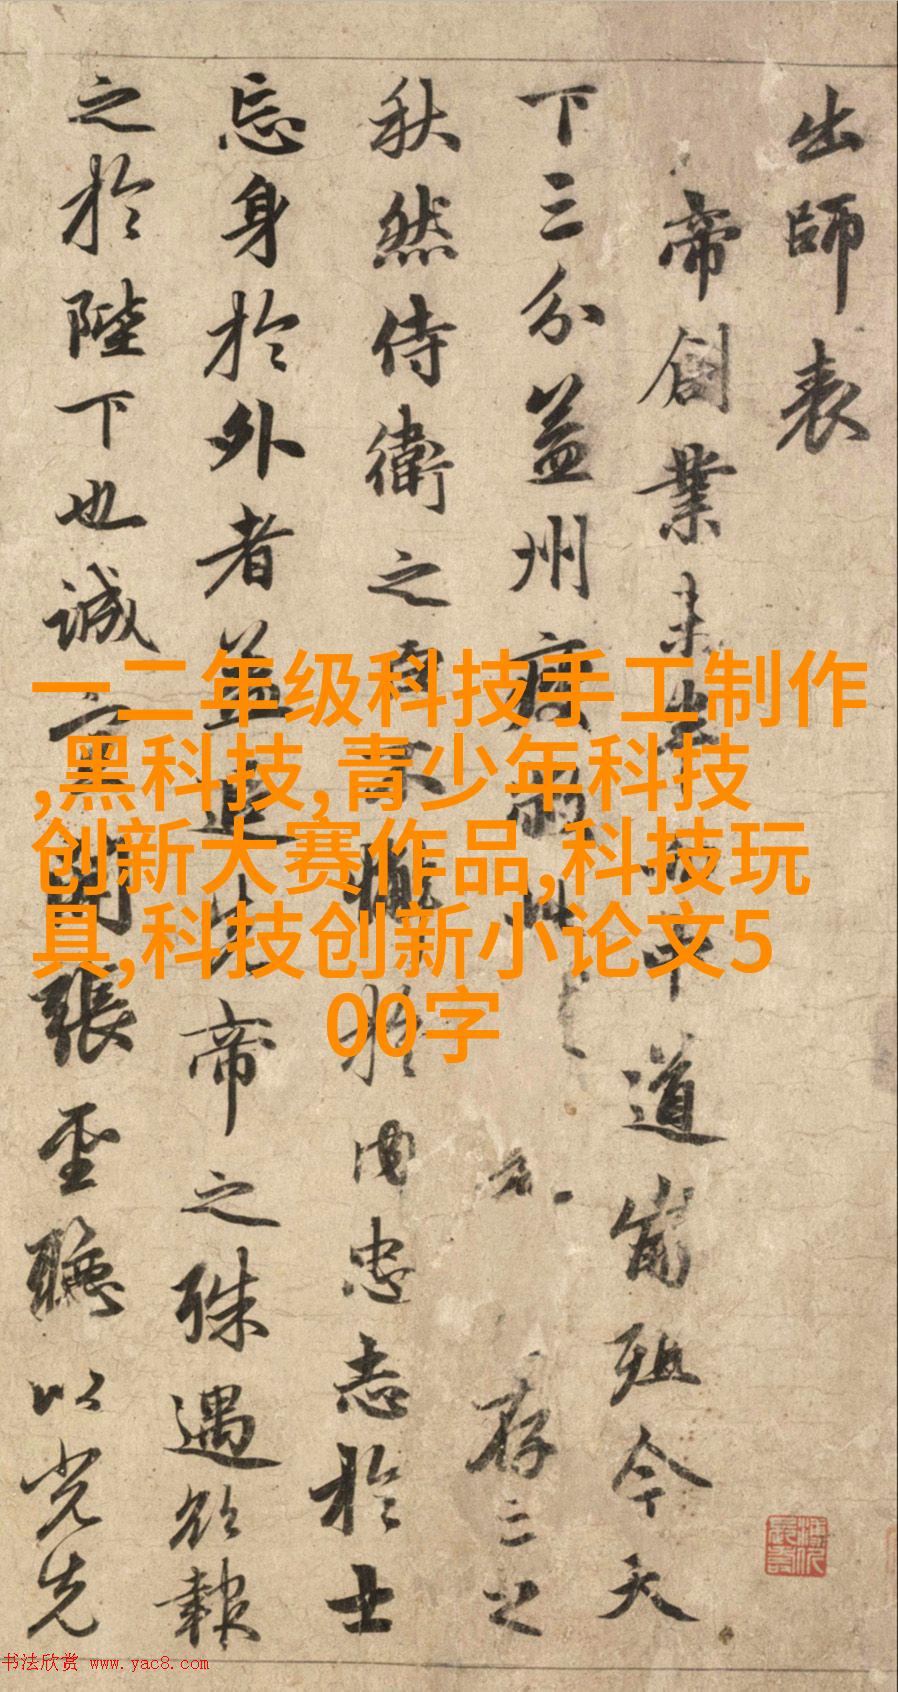 出師表
帝創業未半中道崩殂今天
下三分益州疲弊存亡之
秋然侍衛之臣不懈於内忠志於士
忘身於外者蓋追先帝之殊遇欲報
之於陛下也誠宜開張聖聽以光先
一二年级科技手工制作
,黑科技,青少年科技
创新大赛作品,科技玩
具,科技创新小论文5
00字
书法欣赏 www.yac8.com